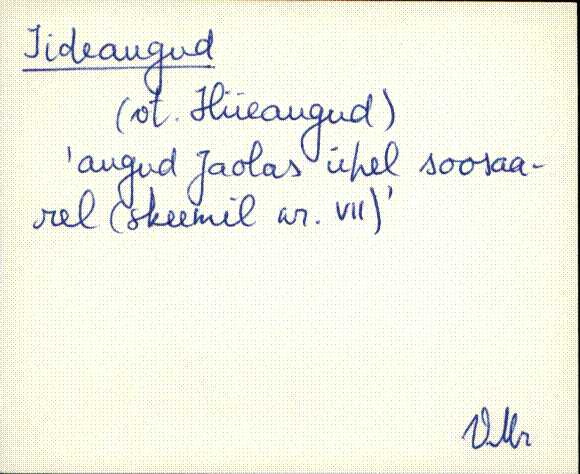 Iideaugud
(vt. Hiieaugud)
'augud Jaolas ühel soosaa-
rel (skeemil nr. VII)'
VMr